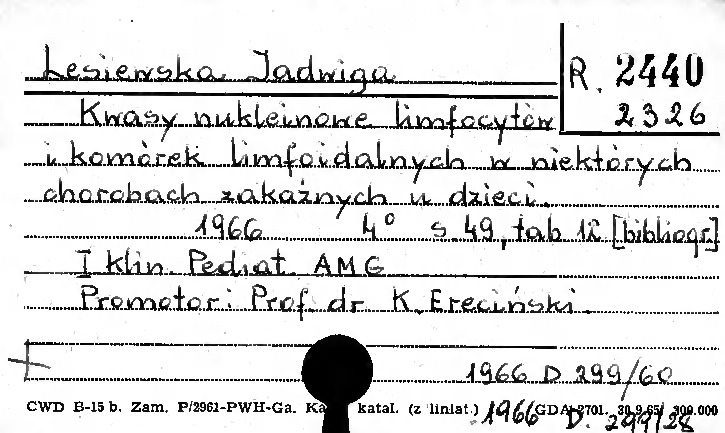 Lesiewska Jadwiga
R. 2440
2326
Kwasy nukleinowe limfocytów
i komórek limfoidalnych w niektórych
chorobach zakaźnych u dzieci.
1966 4° s. 49, tab 12 [bibliogr.]
I Klin. Pediat. AMG
Promotor: Prof. dr K. Ereciński.
1966 D 299/60
CWD B-15 b. Zam. P/2961-PWH-Ga. katal. (z liniat.) GDA-2701. 30.9.65/ 300.000
1966 D. 299/28